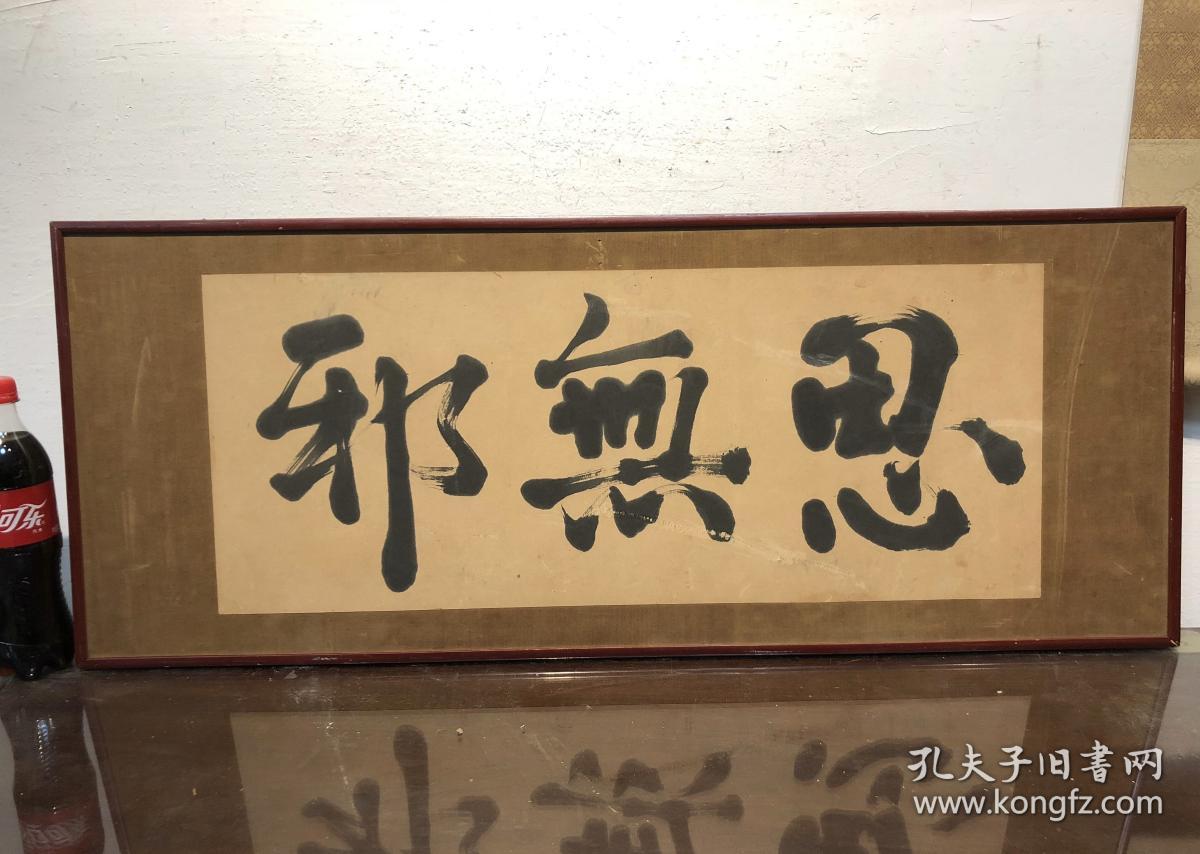 思無邪
可乐
孔夫子旧書网
www.kongfz.com